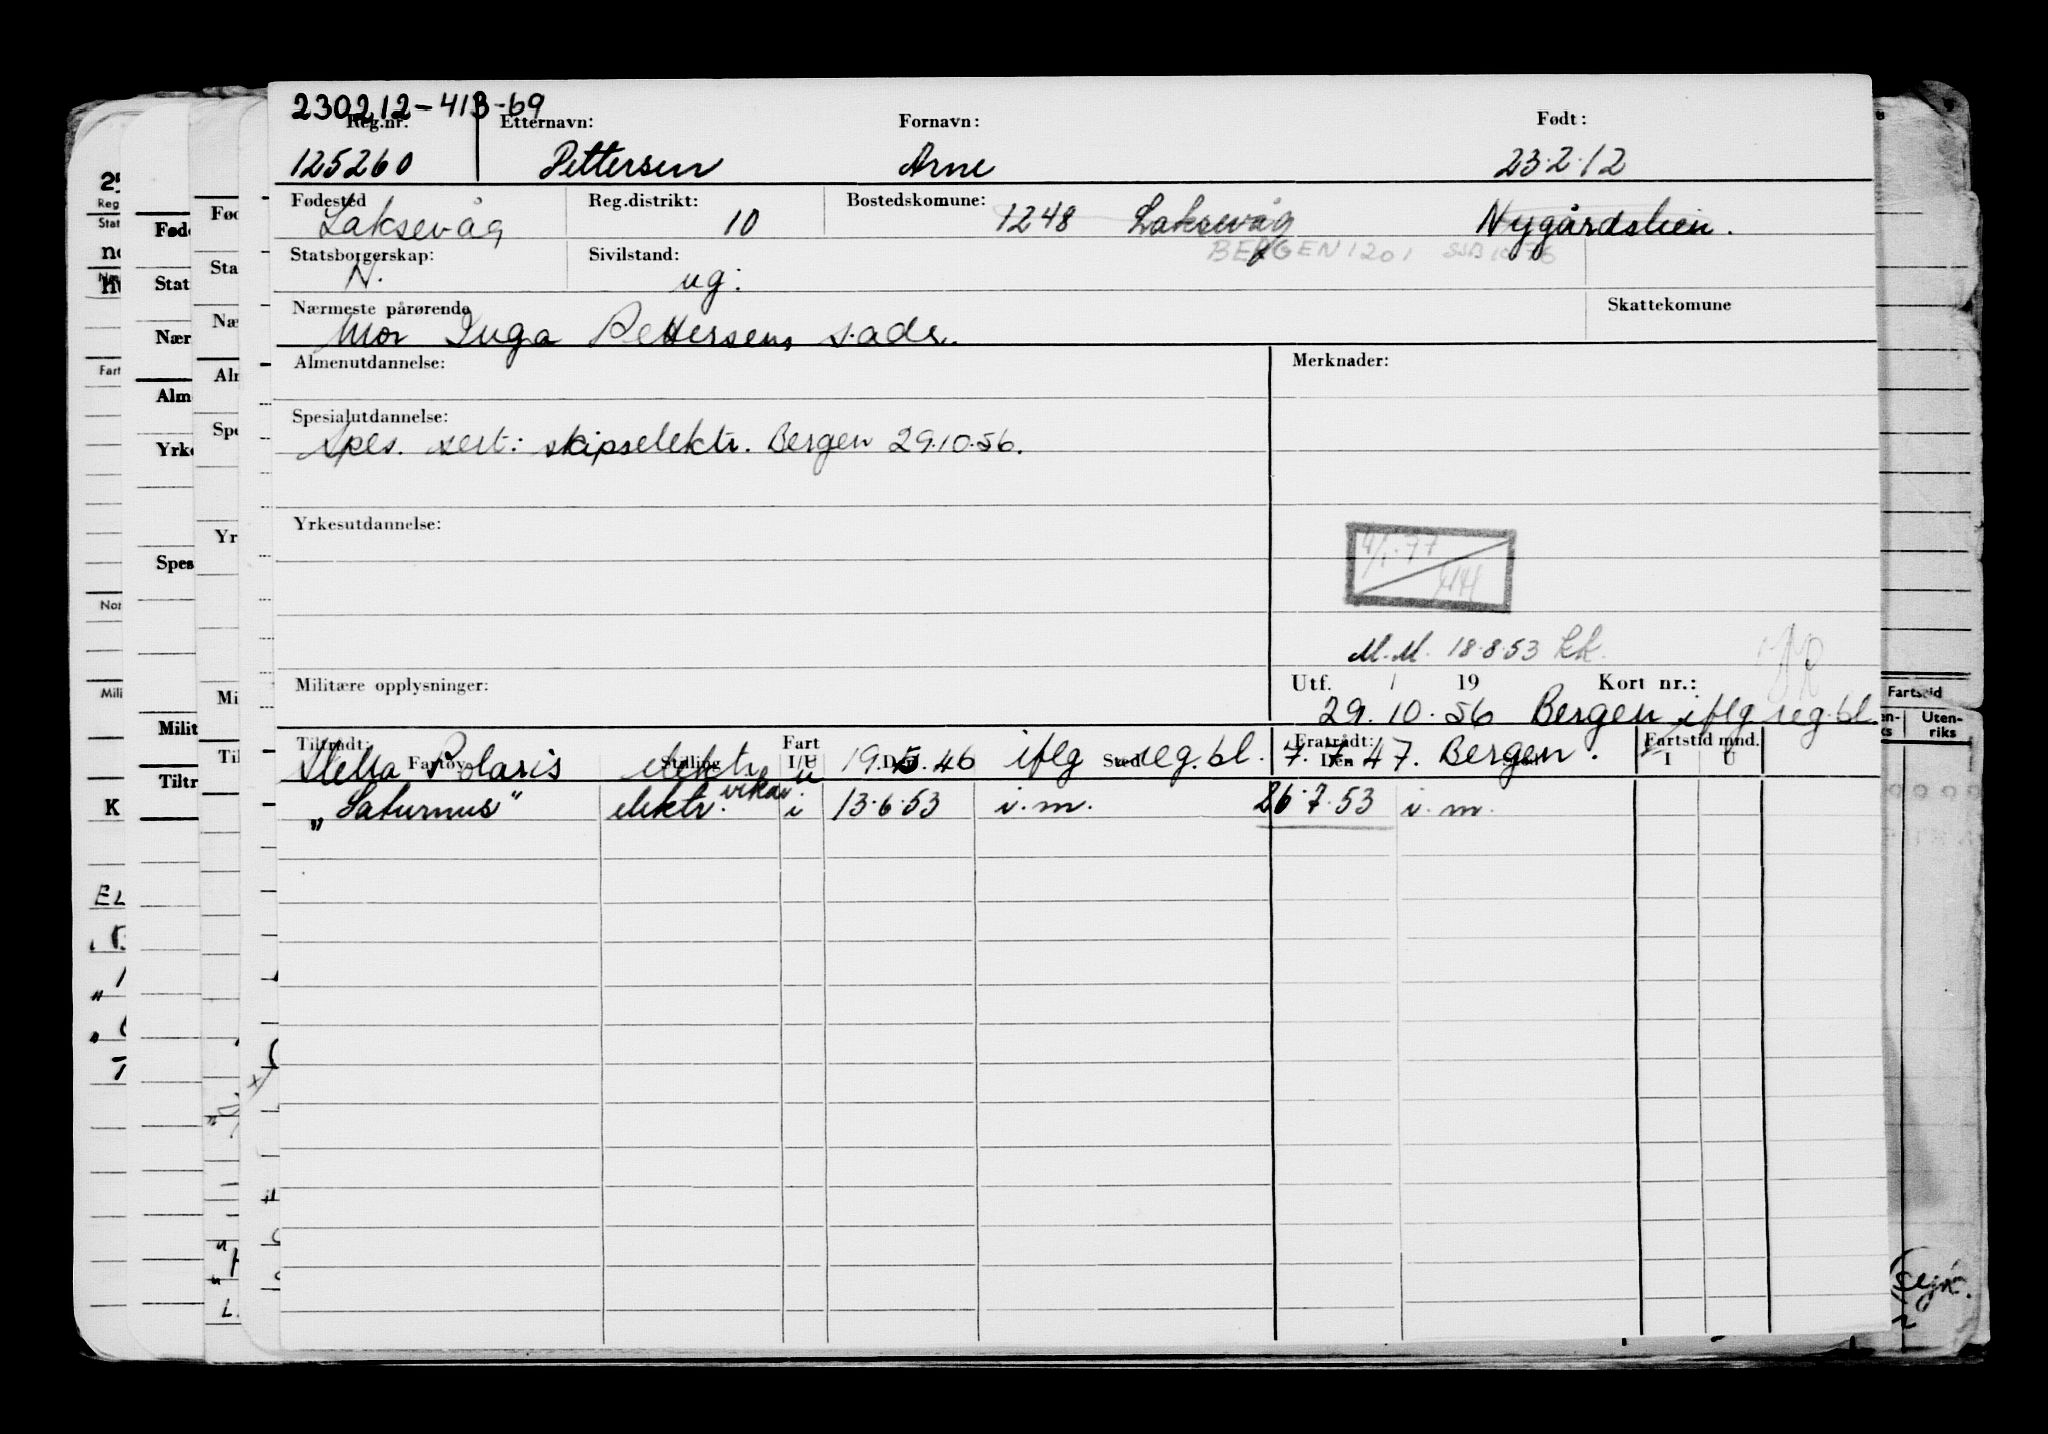 230212-413-69
Reg.nr. Etternavn: Fornavn: Født:
125260 Pettersen Arne 23.2.12
Fødested Reg.distrikt: Bostedskomune:
Laksevåg 10 1248 Laksevåg Nygårdslien.
Statsborgerskap: Sivilstand: BERGEN 1201
N. ug.
Nærmeste pårørende Skattekomune
Mor Inga Pettersen, s. adr.
Almenutdannelse: Merknader:
Spesialutdannelse:
Spes. sert: skipselektr. Bergen 29.10.56.
Yrkesutdannelse:
4/1-77
M.M. 18.8.53 kk.
Militære opplysninger: Utf. / 19 Kort nr.:
29.10.56 Bergen iflg reg.bl.
Tiltrådt: Fart Fratrådt: Fartstid mnd.
Fartøy Stilling I/U Den Sted Den Sted I U
Stella Polaris elektr. u 19.5.46 iflg reg.bl. 7.7.47. Bergen.
"Saturnus" elektr. vikar i 13.6.53 i.m. 26.7.53 i.m.
Fartstid
Uten-
riks